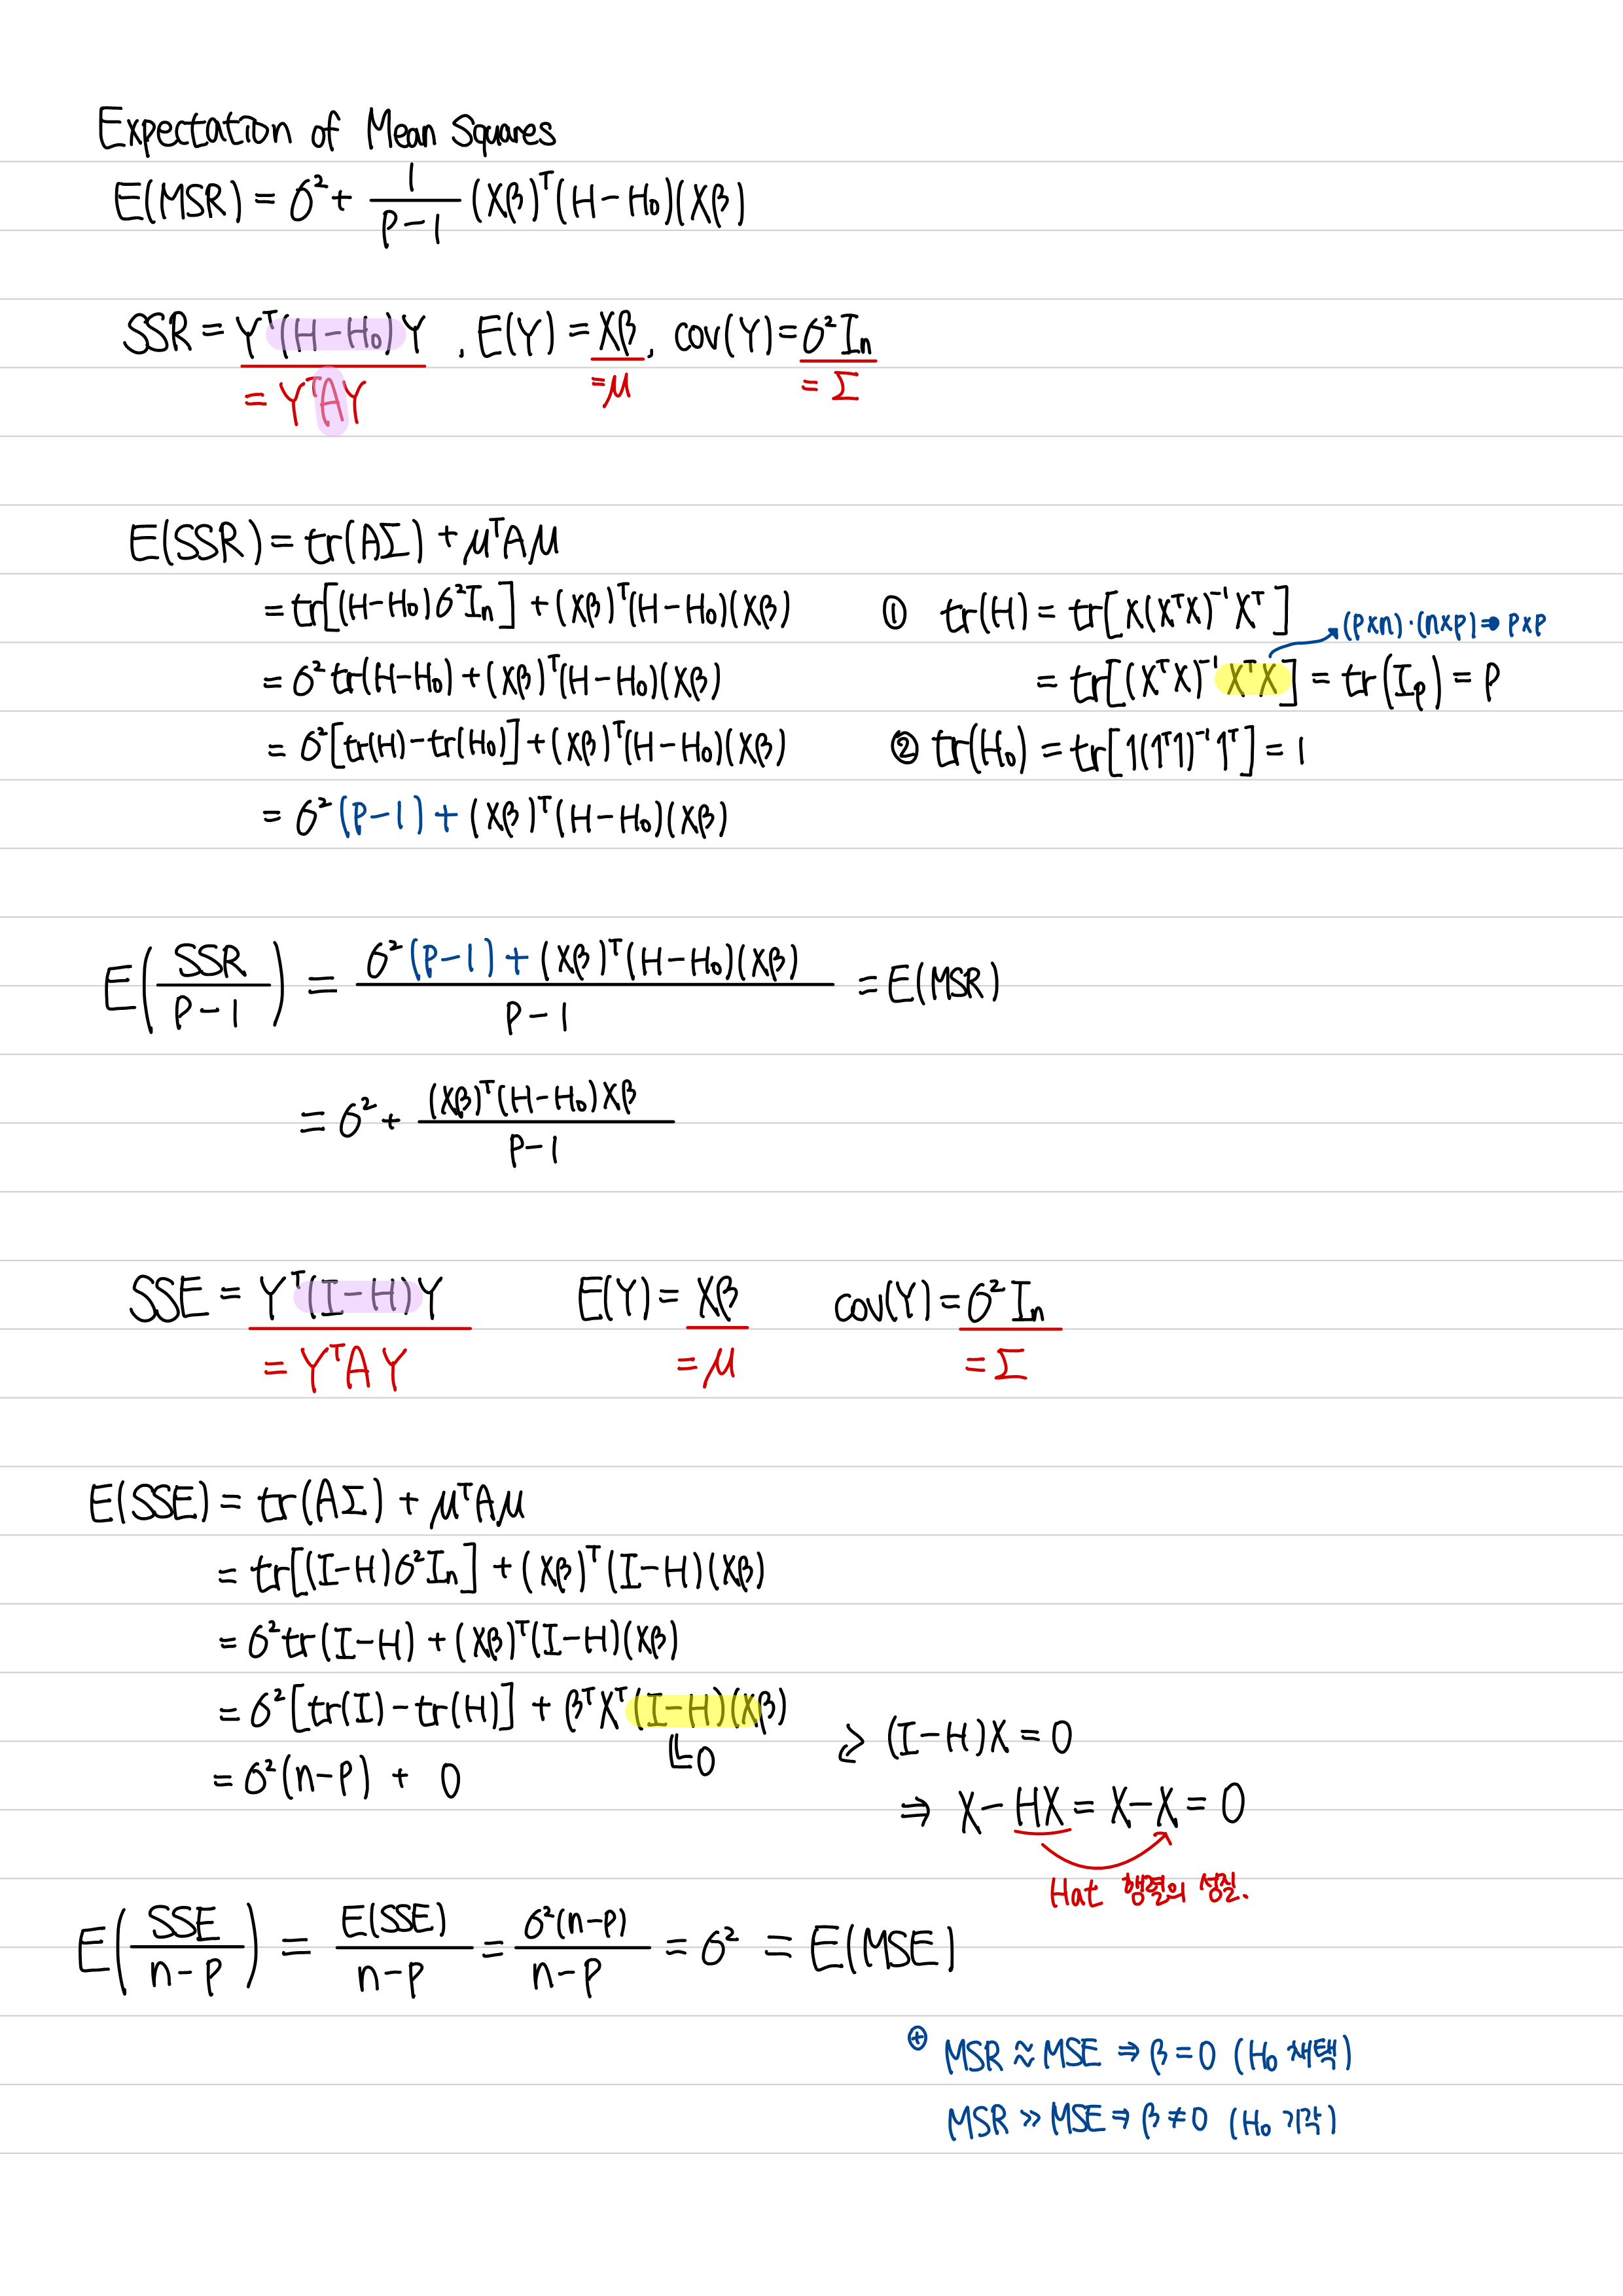 Expectation of Mean Squares
E(MSR) = σ² + 1/(P-1) (Xβ)ᵀ(H-H₀)(Xβ)
SSR = Yᵀ(H-H₀)Y , E(Y) = Xβ, cov(Y) = σ²Iₙ
= YᵀAY = μ = Σ
E(SSR) = tr(AΣ) + μᵀAμ
= tr[(H-H₀)σ²Iₙ] + (Xβ)ᵀ(H-H₀)(Xβ)
= σ²tr(H-H₀) + (Xβ)ᵀ(H-H₀)(Xβ)
= σ²[tr(H)-tr(H₀)] + (Xβ)ᵀ(H-H₀)(Xβ)
= σ²(P-1) + (Xβ)ᵀ(H-H₀)(Xβ)
① tr(H) = tr[X(XᵀX)⁻¹Xᵀ]
(P×n)·(n×P) ⇒ P×P
= tr[(XᵀX)⁻¹XᵀX] = tr(Iₚ) = P
② tr(H₀) = tr[1(1ᵀ1)⁻¹1ᵀ] = 1
E(SSR/(P-1)) = (σ²(P-1) + (Xβ)ᵀ(H-H₀)(Xβ))/(P-1) = E(MSR)
= σ² + ((Xβ)ᵀ(H-H₀)Xβ)/(P-1)
SSE = Yᵀ(I-H)Y E(Y) = Xβ cov(Y) = σ²Iₙ
= YᵀAY = μ = Σ
E(SSE) = tr(AΣ) + μᵀAμ
= tr[(I-H)σ²Iₙ] + (Xβ)ᵀ(I-H)(Xβ)
= σ²tr(I-H) + (Xβ)ᵀ(I-H)(Xβ)
= σ²[tr(I)-tr(H)] + βᵀXᵀ(I-H)(Xβ)
↳0
= σ²(n-P) + 0
(I-H)X = 0
⇒ X-HX = X-X = 0
Hat 행렬의 성질.
E(SSE/(n-P)) = E(SSE)/(n-P) = σ²(n-P)/(n-P) = σ² = E(MSE)
⊕ MSR ≈ MSE ⇒ β = 0 (H₀ 채택)
MSR ≫ MSE ⇒ β ≠ 0 (H₀ 기각)